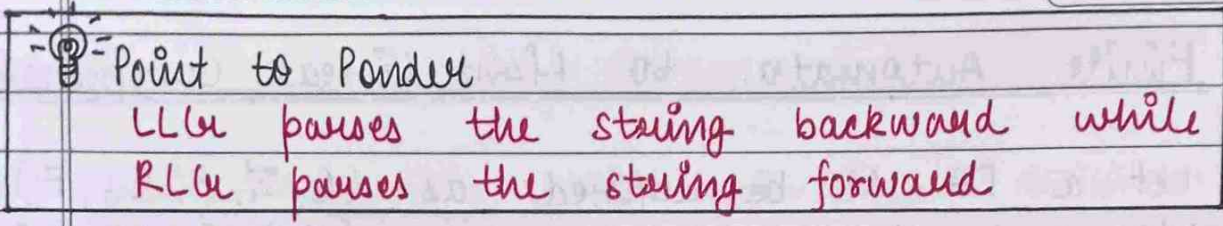 Point to Ponder
LLG parses the string backward while
RLG parses the string forward